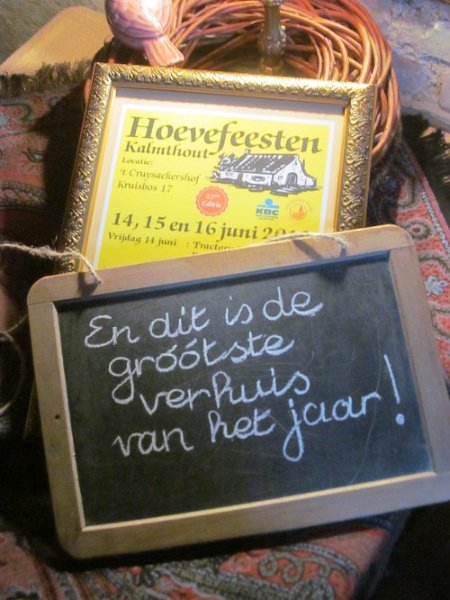 Hoevefeesten
Kalmthout
Locatie:
't Cruysackershof
Kruisbos 17
Editie
KBC
14, 15 en 16 juni
Vrijdag 14 juni :
En dit is de
gróótste
verhuis
van het jaar!